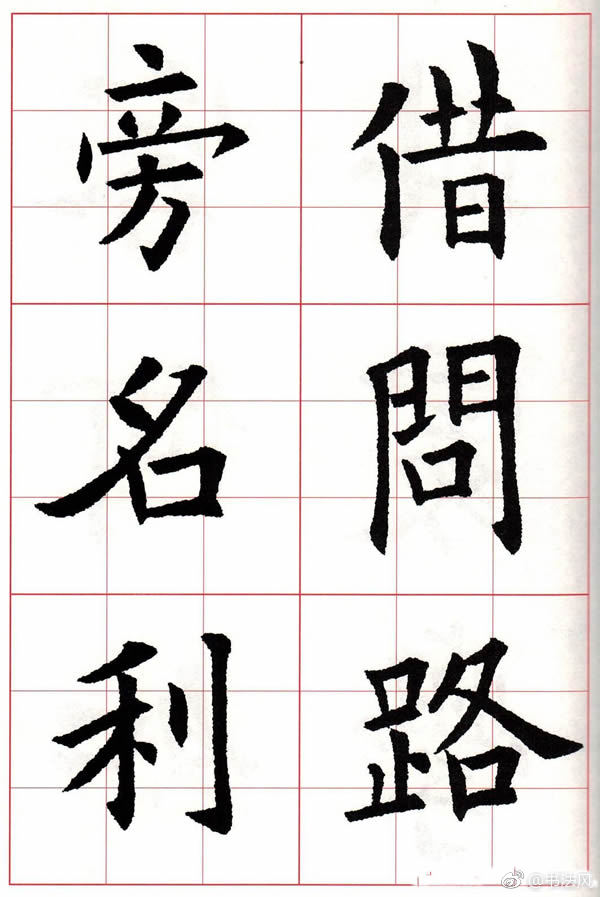 借問路
旁名利
@书法风